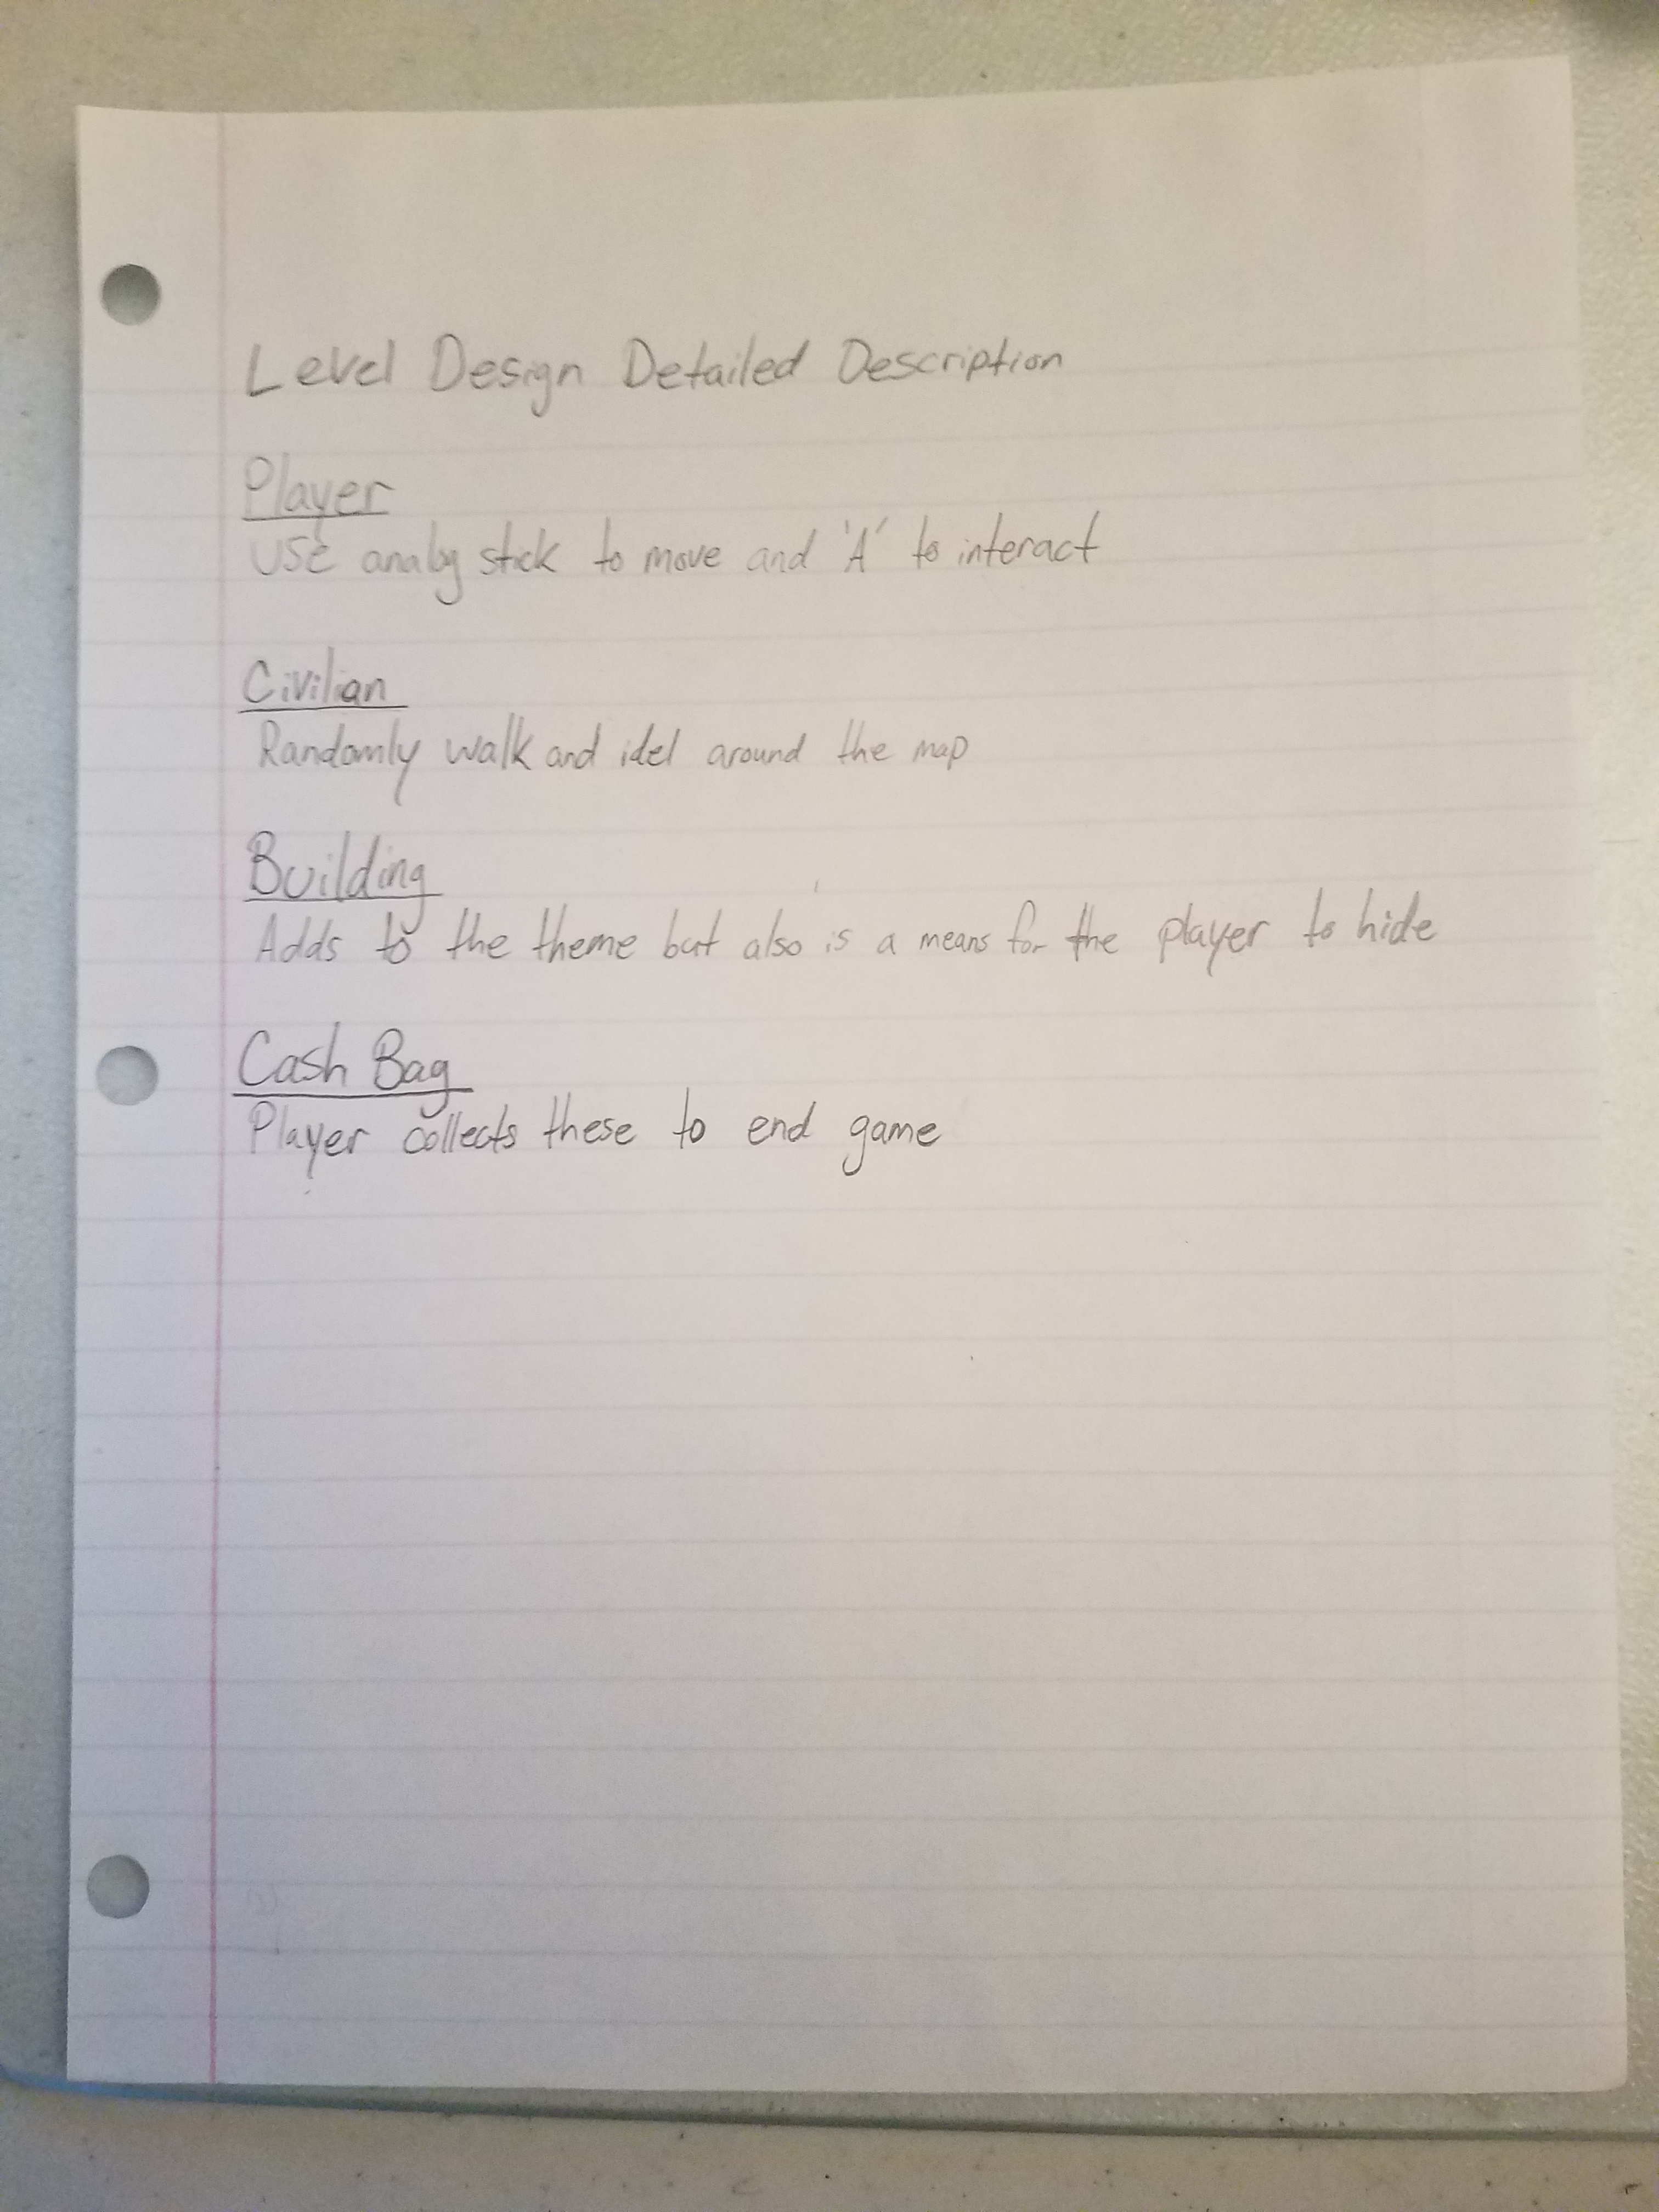 Level Design Detailed Description
Player
Use analog stick to move and 'A' to interact
Civilian
Randomly walk and idel around the map
Building
Adds to the theme but also is a means for the player to hide
Cash Bag
Player collects these to end game